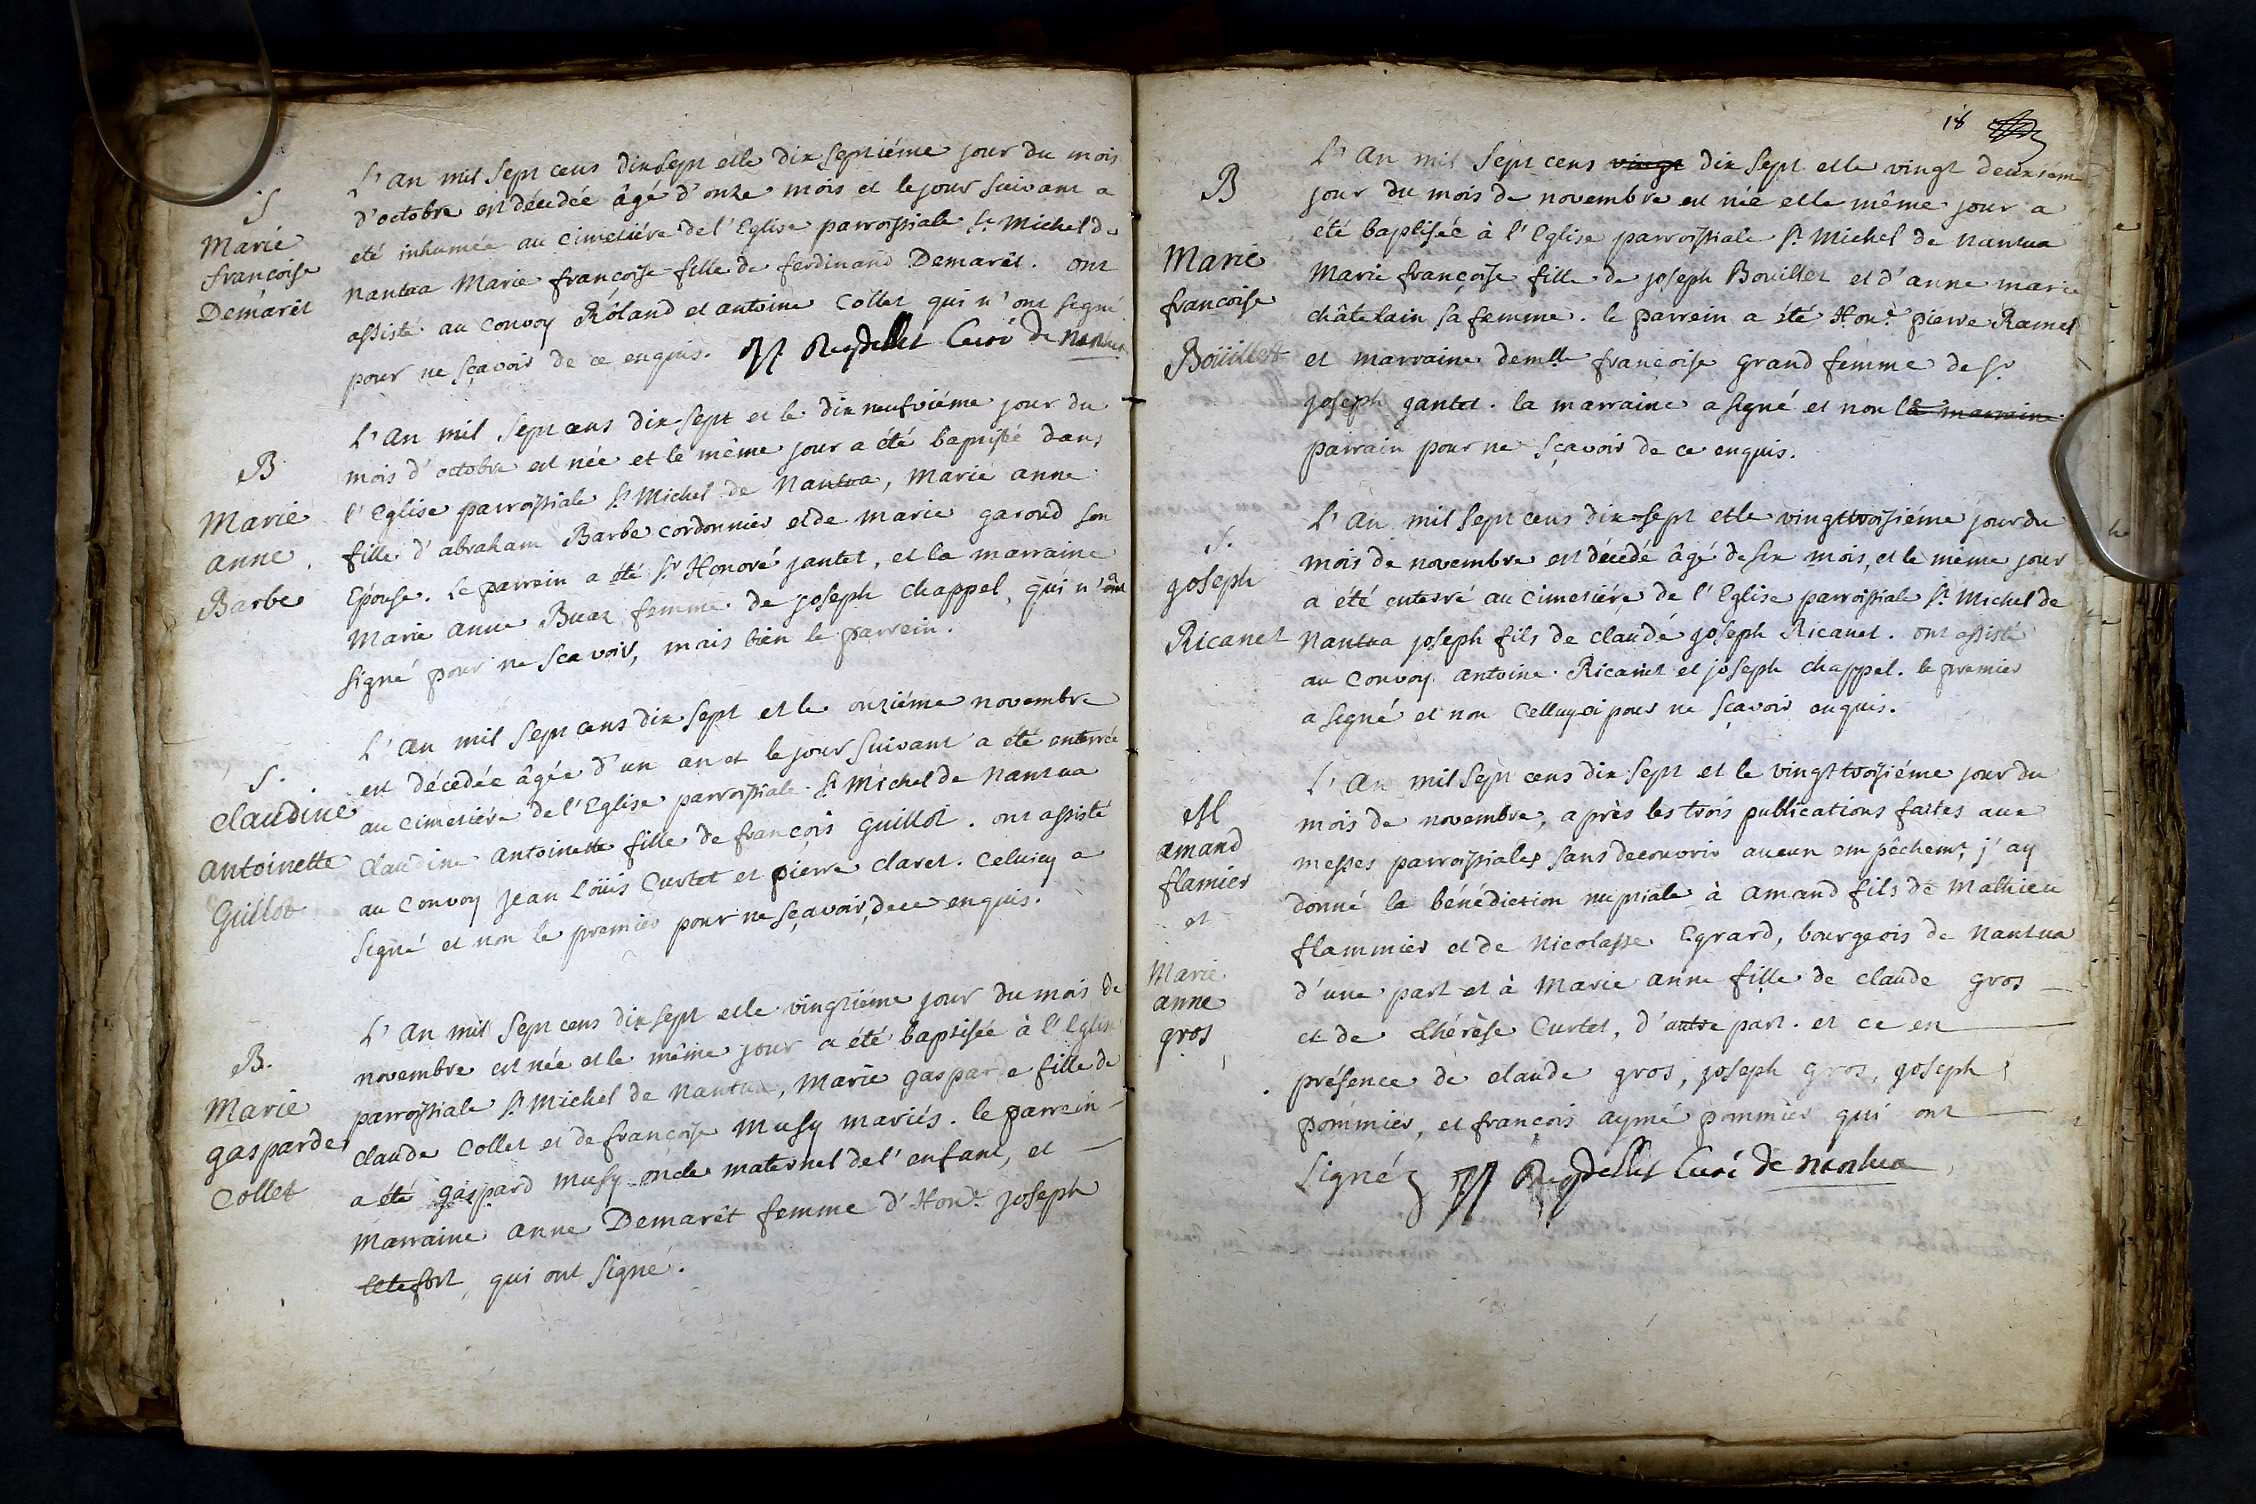 S
Marie
francoise
Demarêt
L'An mil sept cens dix sept et le dix septiéme jour du mois
d'octobre est décédée âgé d'onze mois et le jour suivant a
eté inhumée au cimetiére de l'Eglise parroissiale St Michel de
Nantua Marie françoise fille de ferdinand Demarêt. ont
assisté au convoy Róland et antoine Collet qui n'ont segné
pour ne sçavoir de ce enquis. Curé de Nantua
B
Marie
anne
Barbe
L'An mil sept cens dix sept et le dix neufviéme jour du
mois d'octobre est née et le même jour a été baptisée dans
l'Eglise parroissiale St Michel de Nantua, Marie anne
fille d'abraham Barbe cordonnier et de marie garoud son
Epouse. Le parrein a été Sr Honoré jantet, et la marraine
Marie Anne Buaz femme de joseph chappel, qui n'a
signé pour ne scavoir, mais bien le parrein.
S.
Claudine
Antoinette
Guillot
L'An mil sept cens dix sept et le onziéme novembre
est décédée âgée d'un an et le jour suivant a été enterrée
au cimetiére de l'Eglise parroissiale St Michel de Nantua
Claudine Antoinette fille de françois Guillot. ont assisté
au convoy Jean Loüis Curtet et pierre claret. Celuicy a
signé et non le premier pour ne sçavoir, de ce enquis.
B.
Marie
gasparde
Collet
L'An mil sept cens dix sept et le vingtiéme jour du mois de
novembre est née et le même jour a été baptisée à l'Eglise
parroissiale St Michel de Nantua, Marie gasparde fille de
claude Collet et de françoise Musy mariés. le parrein
a été gaspard musy oncle maternel de l'enfant, et
marraine anne Demarêt femme d'Honê. joseph
qui ont signé.
18
B
Marie
francoise
Boüillet
L'An mil sept cens vingt dix sept et le vingt deuxiém
jour du mois de novembre est née et le même jour a
été baptisée à l'Eglise parroissiale St Michel de Nantua
Marie françoise fille de joseph Bouillet et d'anne marie
châtelain sa femme. le parrein a été Honê. pierre Ramel
et marraine demlle francoise Grand femme de Sr
joseph gantet. la marraine a signé et non la marraine
parrain pour ne sçavoir de ce enquis.
S.
joseph
Ricanet
L'An mil sept cens dix sept et le vingttroisiéme jour du
mois de novembre est décedé âgé de six mois, et le même jour
a été enterré au cimetiére de l'Eglise parroissiale St Michel de
Nantua joseph fils de claude joseph Ricanet. ont assisté
au convoy antoine Ricanet et joseph chappel. le premier
a segné et non celluyci pour ne sçavoir enquis.
M
amand
flamier
et
Marie
anne
gros
L'An mil sept cens dix sept et le vingttroisiéme jour du
mois de novembre, après les trois publications faites aux
messes parroissiales sans decouvrir aucun empêchemt, j'ay
donné la bénédiction nuptiale à amand fils de Mathieu
flammier et de Nicolasse Egrard, bourgeois de Nantua
d'une part et à Marie anne fille de claude gros
et de thérèse Curtet, d'autre part. et ce en
présence de claude gros, joseph gros, joseph
pommier, et françois aymé pommier qui ont
Signé Curé de Nantua